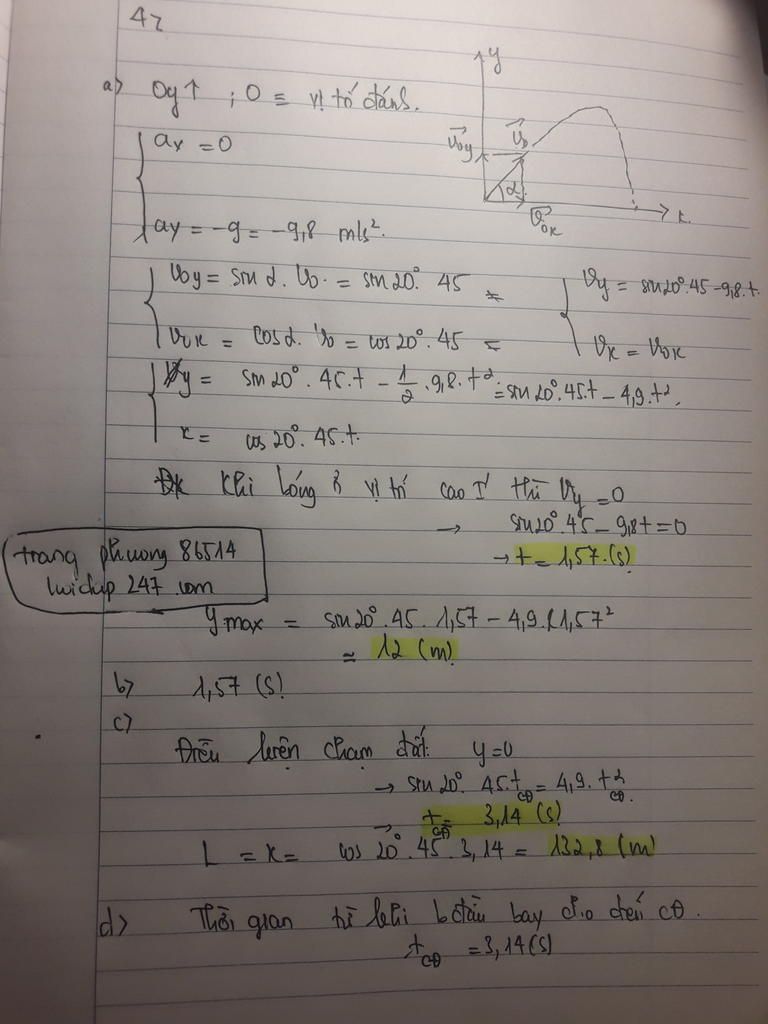 42
a) Oy↑ ; O ≡ vị trí đánh.
y
v⃗oy
v⃗o
α
v⃗ox
x
ax = 0
ay = -g = -9,8 m/s².
voy = sin α. vo. = sin 20°. 45 =
vy = sin20°.45-9,8.t.
vox = cosα. vo = cos 20°. 45 =
vx = vox
y = sin 20°. 45.t - 1/2 . 9,8. t² = sin 20°.45.t - 4,9.t².
x = cos 20°. 45.t.
Khi bóng ở vị trí cao I' thì vy = 0
→ sin20°.45 - 9,8t = 0
→ t = 1,57.(s)
trang phuong 86514
luidap 247 .com
ymax = sin 20°.45. 1,57 - 4,9.1,57²
≈ 12 (m)
b) 1,57 (s)
c)
Điều kiện chạm đất: y=0
→ sin 20°. 45.tcđ = 4,9. t²cđ.
→ tcđ = 3,14 (s)
L = x = cos 20°.45. 3,14 = 132,8 (m)
d) Thời gian từ khi bđầu bay cho đến cđ.
tcđ = 3,14(s)